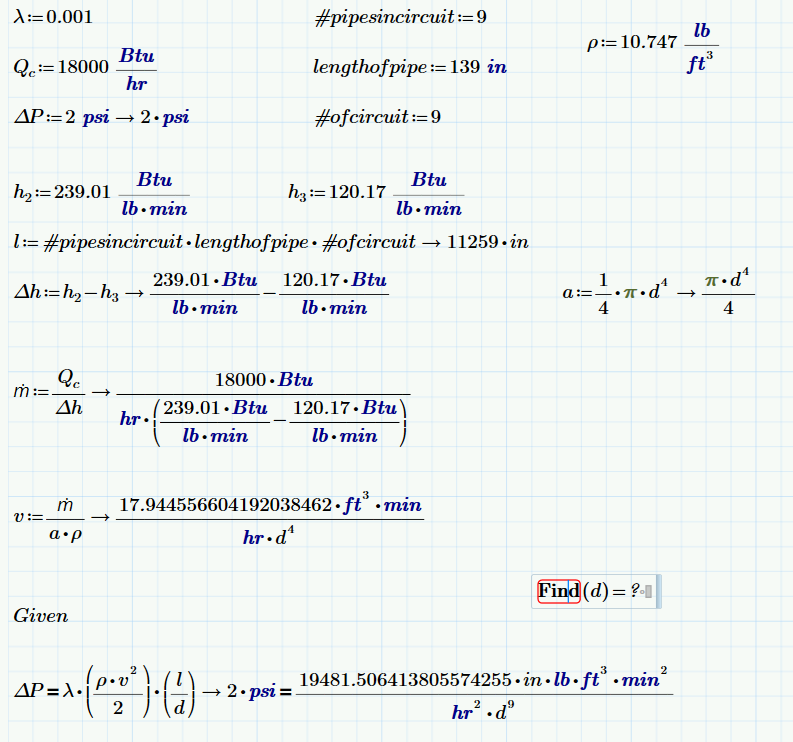 λ:=0.001 #pipesincircuit:=9 ρ:=10.747 lb/ft^3
Q_c:=18000 Btu/hr lengthofpipe:=139 in
ΔP:=2 psi → 2•psi #ofcircuit:=9
h_2:=239.01 Btu/(lb•min) h_3:=120.17 Btu/(lb•min)
l:=#pipesincircuit•lengthofpipe•#ofcircuit → 11259•in
Δh:=h_2−h_3 → (239.01•Btu)/(lb•min) − (120.17•Btu)/(lb•min) a:=1/4•π•d^4 → (π•d^4)/4
ṁ:=Q_c/Δh → (18000•Btu)/(hr•((239.01•Btu)/(lb•min) − (120.17•Btu)/(lb•min)))
v:=ṁ/(a•ρ) → (17.944556604192038462•ft^3•min)/(hr•d^4)
Find(d)=?
Given
ΔP=λ•((ρ•v^2)/2)•(l/d) → 2•psi=(19481.506413805574255•in•lb•ft^3•min^2)/(hr^2•d^9)